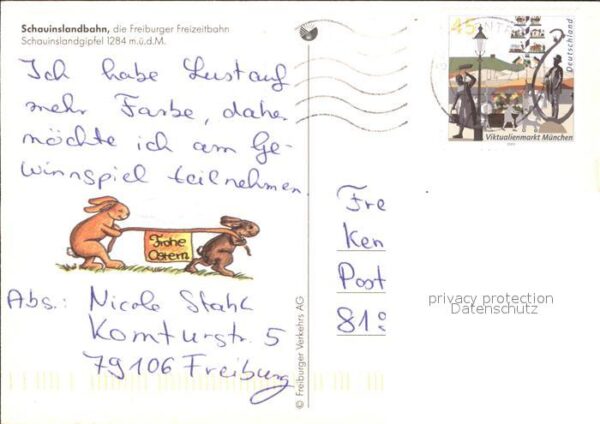 Schauinslandbahn, die Freiburger Freizeitbahn
Schauinslandgipfel 1284 m.ü.d.M.
Ich habe Lust auf
mehr Farbe, daher
möchte ich am Ge-
winnspiel teilnehmen.
Frohe
Ostern
Abs.: Nicole Stahl
Komturstr. 5
79106 Freiburg
© Freiburger Verkehrs AG
45
Deutschland
Viktualienmarkt München
Fre
Ken
Post
81
privacy protection
Datenschutz